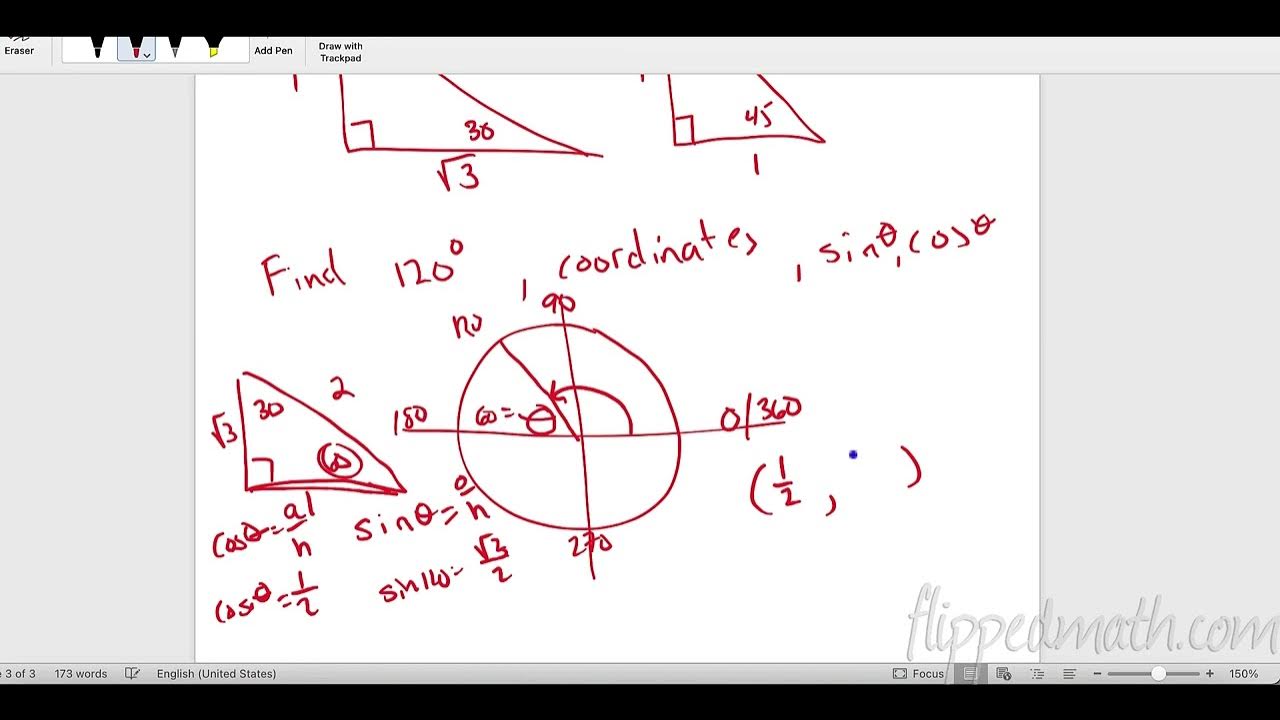 Eraser
Add Pen
Draw with
Trackpad
30
√3
45
1
Find 120° , coordinates , sinθ, cosθ
90
120
2
√3
30
180
60 = θ
0/360
60
1
(1/2 , )
cosθ = a/h
sinθ = o/h
270
cosθ = 1/2
sin120 = √3/2
flippedmath.com
3 of 3
173 words
English (United States)
Focus
150%